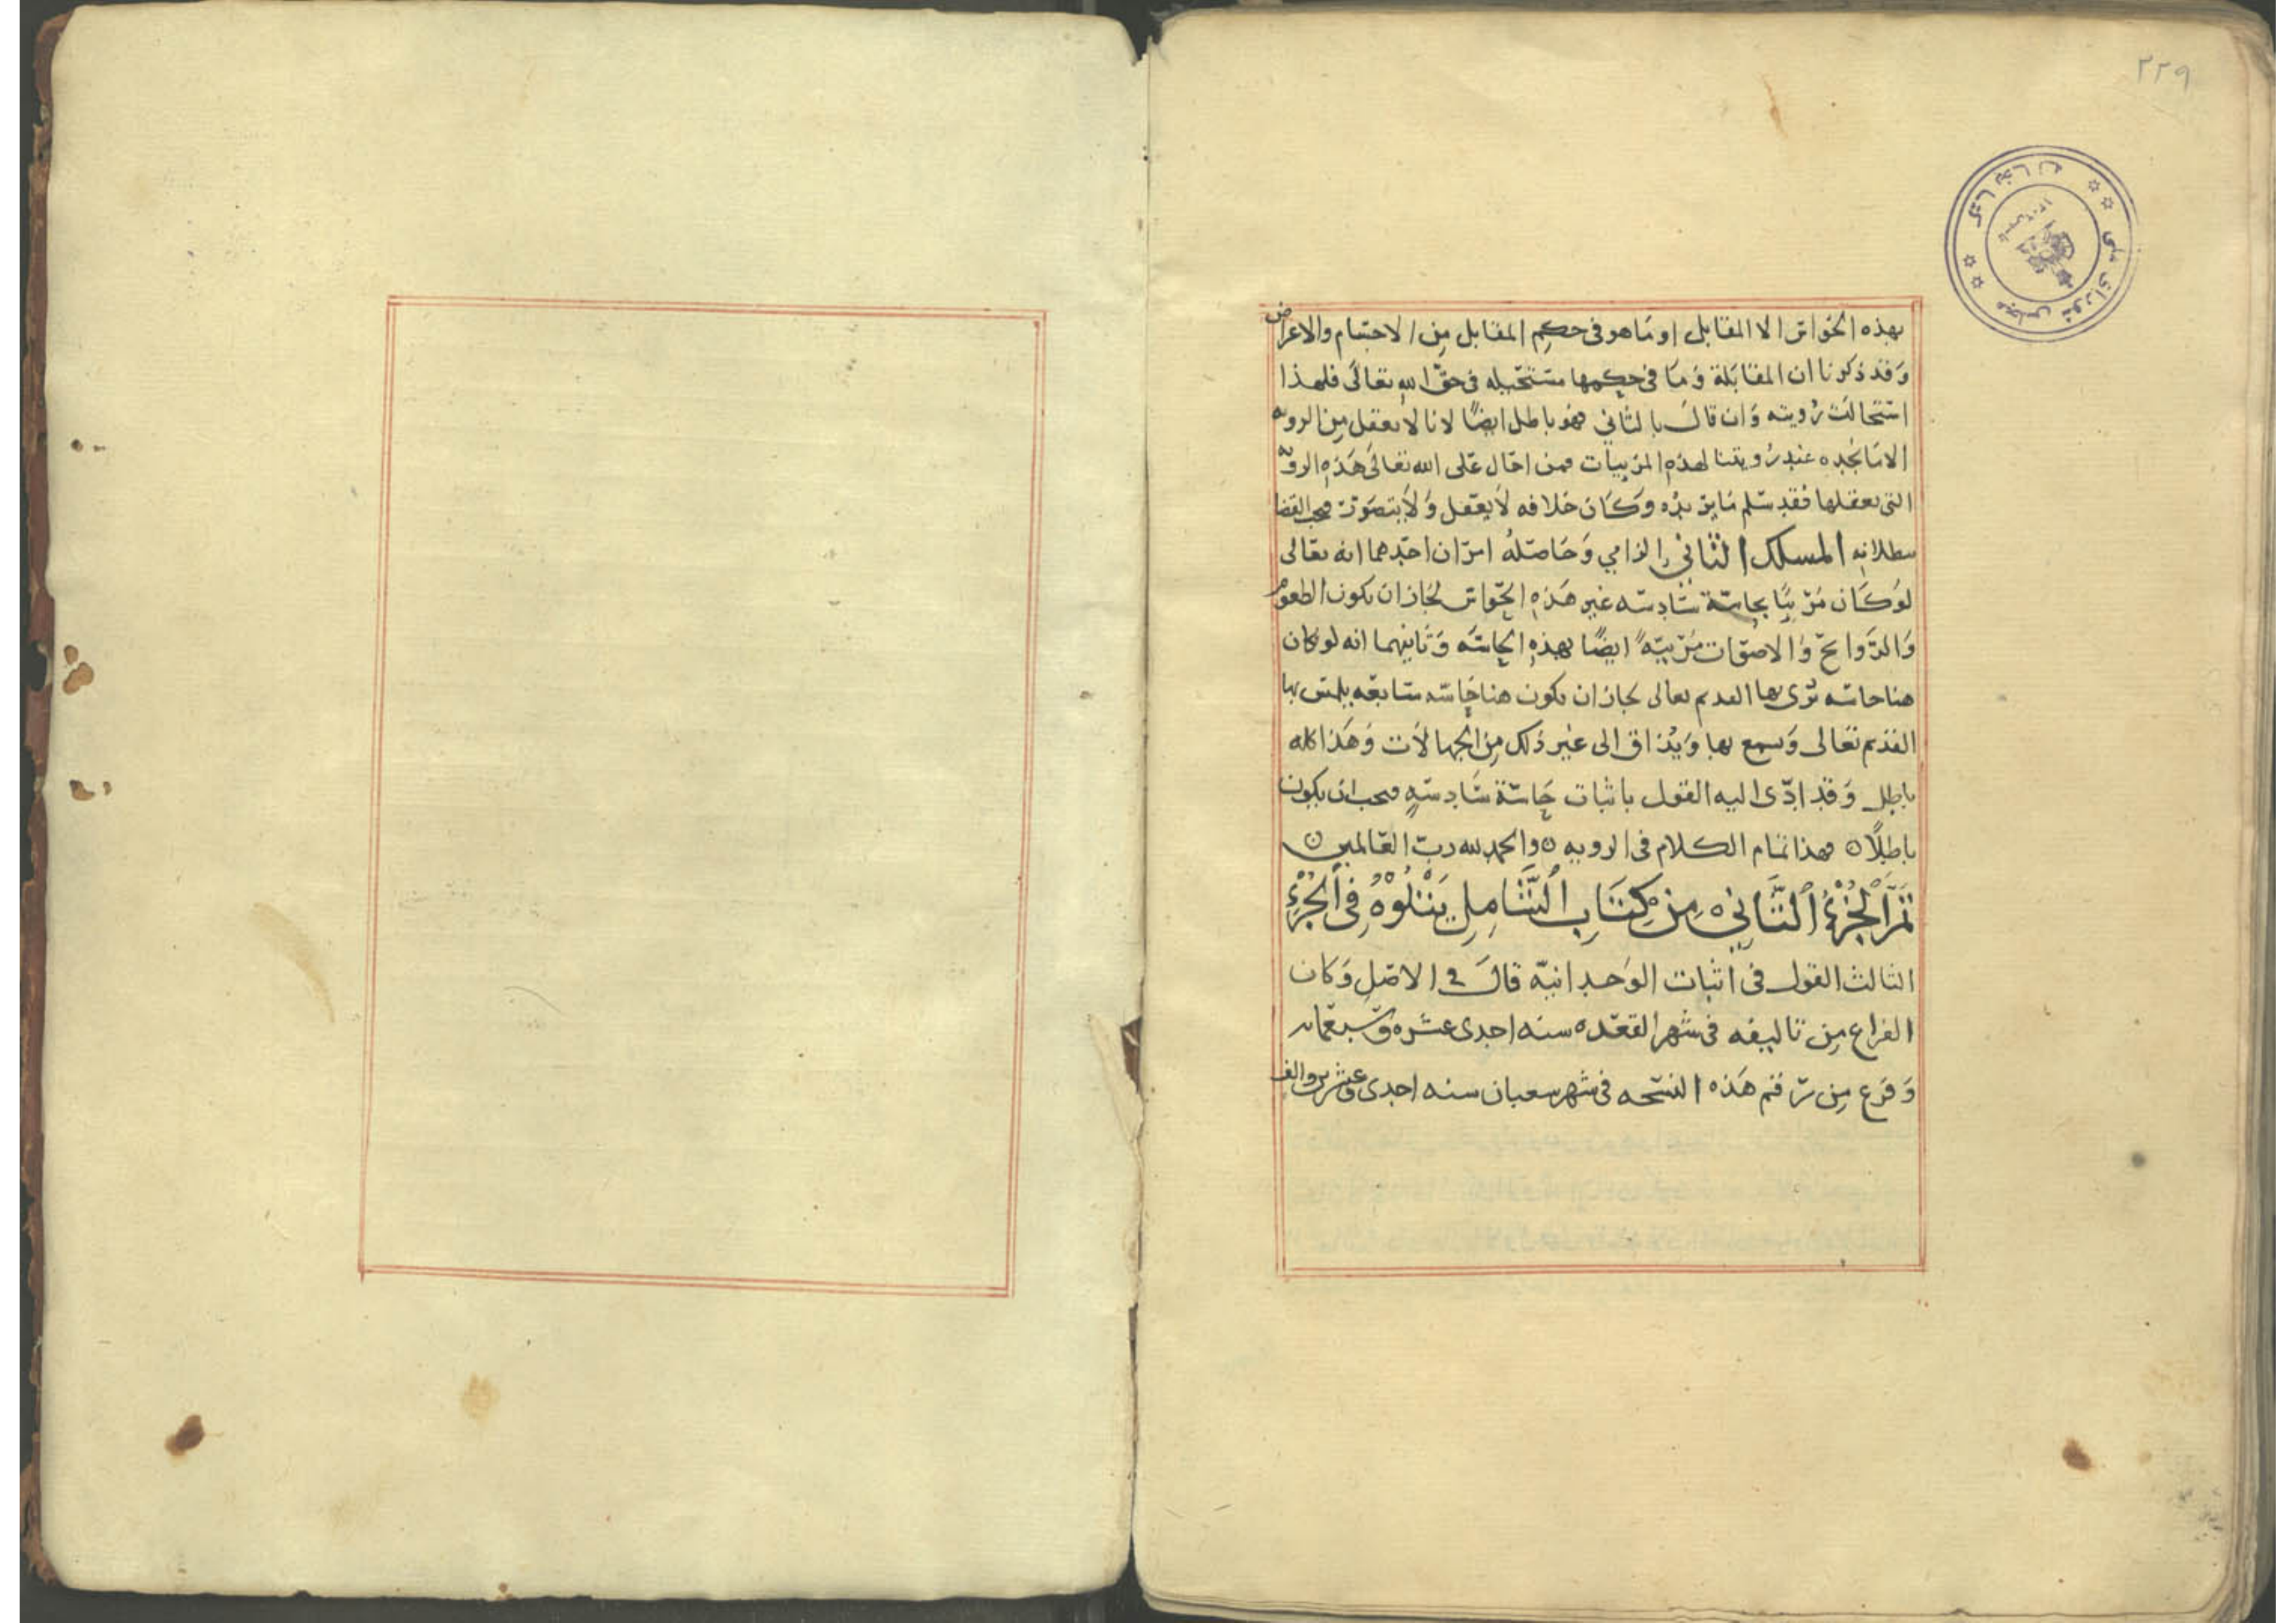 ٢٢٩
بهذه الحواس الا المقابل او ما هو فى حكم المقابل من الاجسام والاعراض
وقد ذكرنا ان المقابلة وما فى حكمها مستحيله فى حق الله تعالى فلهذا
استحالت رويته وان قال بالثاني فهو باطل ايضًا لانا لا نعقل من الرويه
الا ما نجده عند رويتنا لهذه المرييات فمن احال على الله تعالى هذه الرويه
التى نعقلها فقد سلم ما نريده وكان خلافه لا يعقل ولا يتصور فيجب القضا
ببطلانه المسلك الثاني الزامي وحاصله امران احدهما انه تعالى
لو كان مرييًا بحاسة سادسه غير هذه الحواس لجاز ان يكون الطعوم
والروايح والاصوات مرييّه ايضًا بهذه الحاسه وثانيهما انه لو كان
هنا حاسه نرى بها القديم تعالى لجاز ان يكون هنا حاسه سابعه يلمس بها
القديم تعالى ويسمع بها ويذاق الى غير ذلك من الجهالات وهذا كله
باطل وقد ادّى اليه القول باثبات حاسة سادسه فيجب ان يكون
باطلًا فهذا تمام الكلام فى الرويه والحمد لله رب العالمين
تمّ الجُزْءُ الثَّانِي مِنْ كِتَابِ الشَّامِلِ يَتْلُوْهُ فِى الجُزْءِ
الثالث القول فى اثبات الوحدانيّه قال فى الاصل وكان
الفراغ من تاليفه فى شهر القعده سنه احدى عشره وسبعمايه
وفرغ من رقم هذه النسخه فى شهر شعبان سنه احدى وعشرين والف